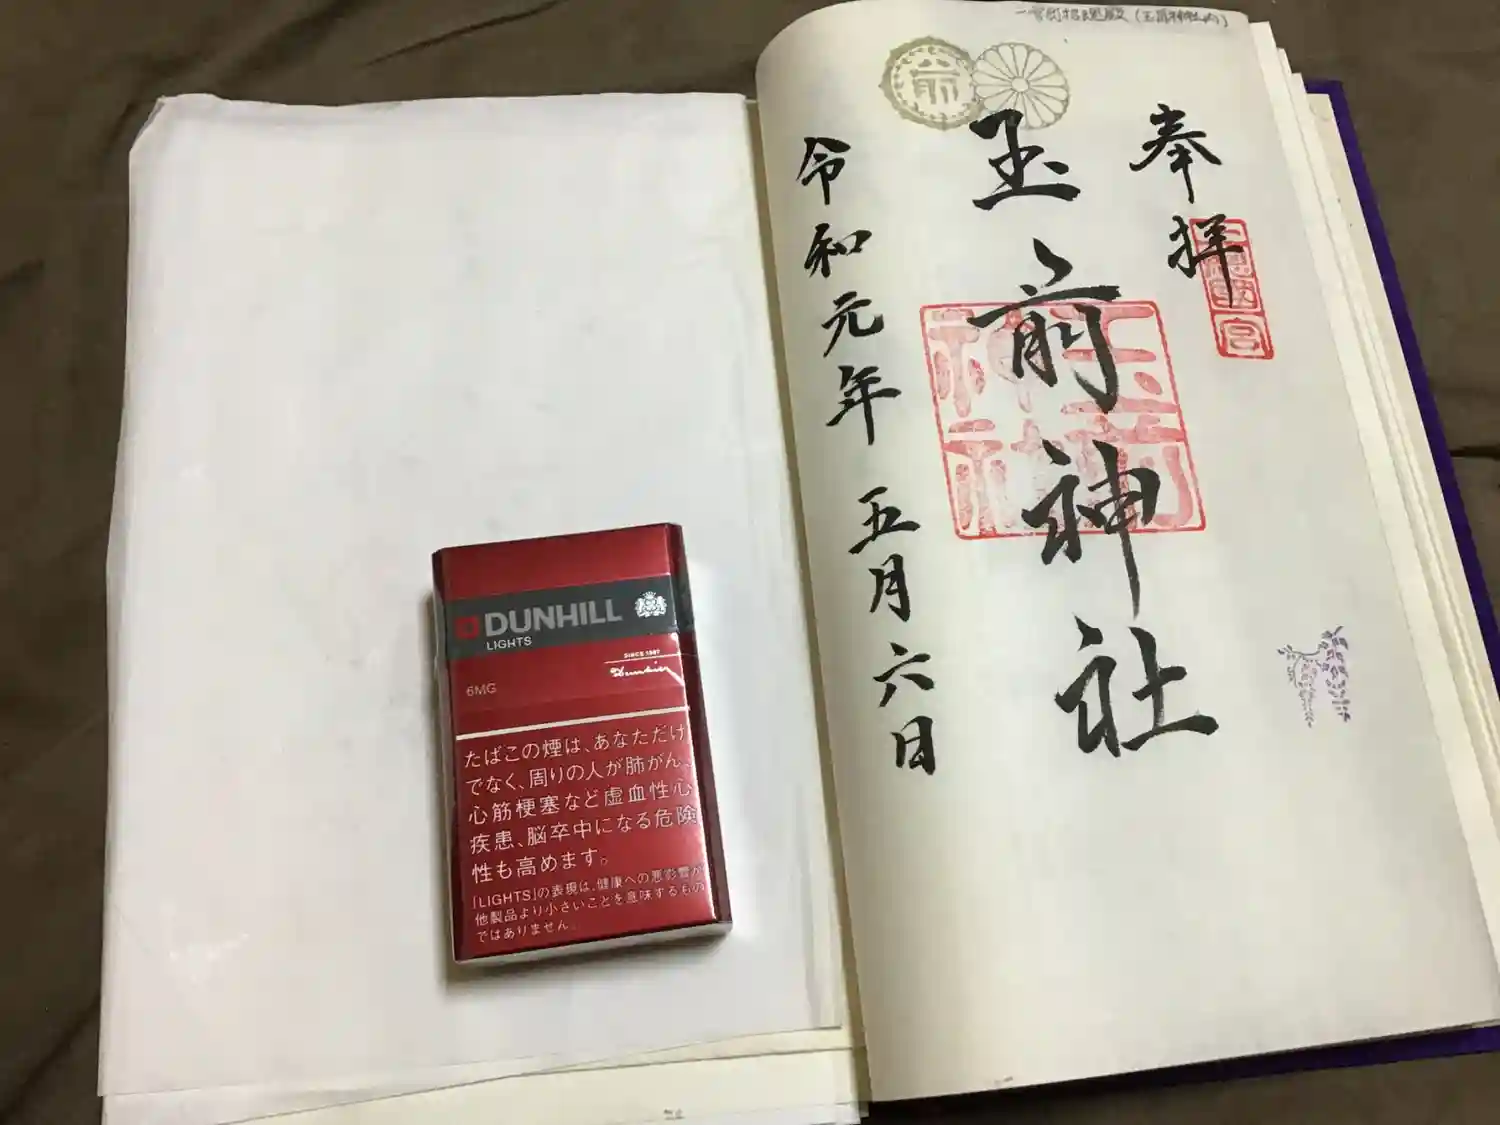 奉拝
玉前神社
令和元年 五月六日
玉前
神社
前
DUNHILL
LIGHTS
SINCE 1907
Dunhill
6MG
たばこの煙は、あなただけ
でなく、周りの人が肺がん、
心筋梗塞など虚血性心
疾患、脳卒中になる危険
性も高めます。
「LIGHTS」の表現は、健康への悪影響が
他製品より小さいことを意味するもの
ではありません。